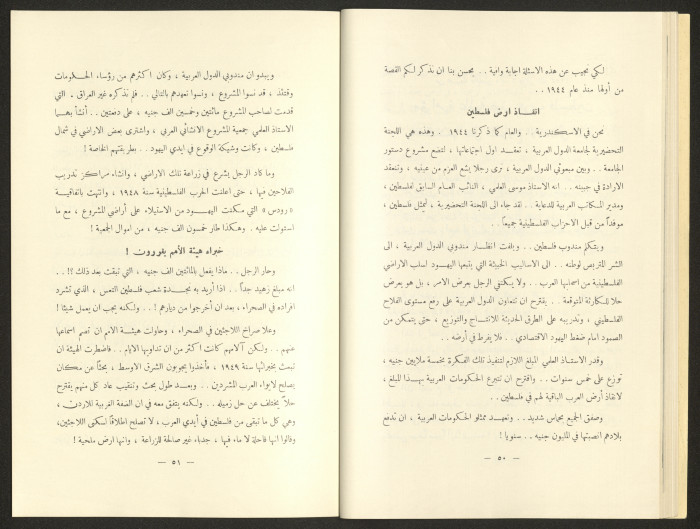 لكي نجيب عن هذه الاسئلة اجابة وافية . . يحسن بنا ان نذكر لكم القصة
من أولها منذ عام ١٩٤٤ . .
انقــاذ ارض فلسطين
نحن في الاسكندرية . . والعام كما ذكرنا ١٩٤٤ . وهذه هي اللجنة
التحضيرية لجامعة الدول العربية ، تعقـد اول اجتماعاتها ، لتضع مشروع دستور
الجامعة . . وبين مبعوثي الدول العربية ، نرى رجلا يشع العزم من عينيه ، وتنعقد
الارادة في جبينه . . انه الاستاذ موسى العلمي ، النائب العـام السابق لفلسطين ،
ومدير المكاتب العربية للدعاية . . لقد جاء الى اللجنة التحضيرية ، يمثل فلسطين ،
موفداً من قبل الاحزاب الفلسطينية جميعاً . .
ويتكلم مندوب فلسطين . . ويلفت انظـار مندوبي الدول العربية ، الى
الشر المتربص لوطنه . . الى الاساليب الخبيثة التي يتبعها اليهـود لسلب الاراضي
الفلسطينية من اصحابها العرب . . ولا يكتفي الرجل بعرض الامر ، بل هو يعرض
حلا للكارثة المتوقعة . . يقترح ان تتعاون الدول العربية على رفع مستوى الفلاح
الفلسطيني ، وتدريبه على الطرق الحديثة للانتــاج والتوزيع ، حتى يتمكن من
الصمود امام ضغط اليهود الاقتصادي . . فلا يفرط في أرضه . .
وقدر الاستـاذ العلمي المبلغ اللازم لتنفيذ تلك الفكرة بخمسة ملايين جنيه ،
توزع على خمس سنوات . . واقترح ان تتبرع الحكومات العربية بهـذا المبلغ ،
لانقاذ أرض العرب الباقية لهم في فلسطين . .
وصفق الجميع بحماس شديد . . وتعهـد ممثلو الحكومات العربية ، ان تدفع
بلادهم انصبتها في المليون جنيه . . سنويا !
— ٥٠ —
ويبدو ان مندوبي الدول العربية ، وكان اكثرهم من رؤساء الحكـومات
وقتئذ ، قد نسوا المشروع ، ونسوا تعهدهم بالتالي . . فلم يذكره غير العراق . . التي
قدمت لصاحب المشروع مائتين وخمسين الف جنيه ، على دفعتين . . أنشأ بهمـا
الاستاذ العلمي جمعية المشروع الانشائي العربي ، واشترى بعض الاراضي في شمال
فلسطين ، وكانت وشيكة الوقوع في ايدي اليهود . . بطريقتهم الخاصة !
وما كاد الرجل يشرع في زراعة تلك الاراضي ، وانشاء مراكز تدريب
الفلاحين فيها ، حتى اعلنت الحرب الفلسطينية سنة ١٩٤٨ ، وانتهت باتفاقيـة
« رودس » التي مكنت اليهـود من الاستيلاء على أراضي المشروع ، مع ما
استولت عليه . وهكذا طار خمسون الف جنيه ، من اموال الجمعية !
خبراء هيئة الأمم يقررون !
وحار الرجل . . ماذا يفعل بالمائتين الف جنيه ، التي تبقت بعد ذلك ؟! . .
انه مبلغ زهيد جداً . . اذا أريد به نجـدة شعب فلسطين التعس ، الذي تشرد
افراده في الصحراء ، بعد ان أخرجوا من ديارهم ! . . ولكنه يجب ان يعمل شيئا !
وعلا صراخ اللاجئين في الصحراء ، وحاولت هيئة الامم ان تصم اسماعها
عنهم . . ولكن آلامهم كانت اكثر من ان تداويها الايام . . فاضطرت الهيئة ان
تبعث بخبرائها سنة ١٩٤٩ ، فأخذوا يجوبون الشرق الاوسط ، بحثاً عن مكان
يصلح لايواء العرب المشردين . . وبعـد طول بحث وتنقيب عاد كل منهم يقترح
حلاً يختلف عن حل زميله . . ولكنه يتفق معه في ان الضفة الغربية للاردن ،
وهي كل ما تبقى من فلسطين في أيدي العرب ، لا تصلح اطلاقاً لسكنى اللاجئين،
وقالوا انها قاحلة لا ماء فيها ، جدباء غير صالحة للزراعة ، وانها ارض ملحية !
— ٥١ —